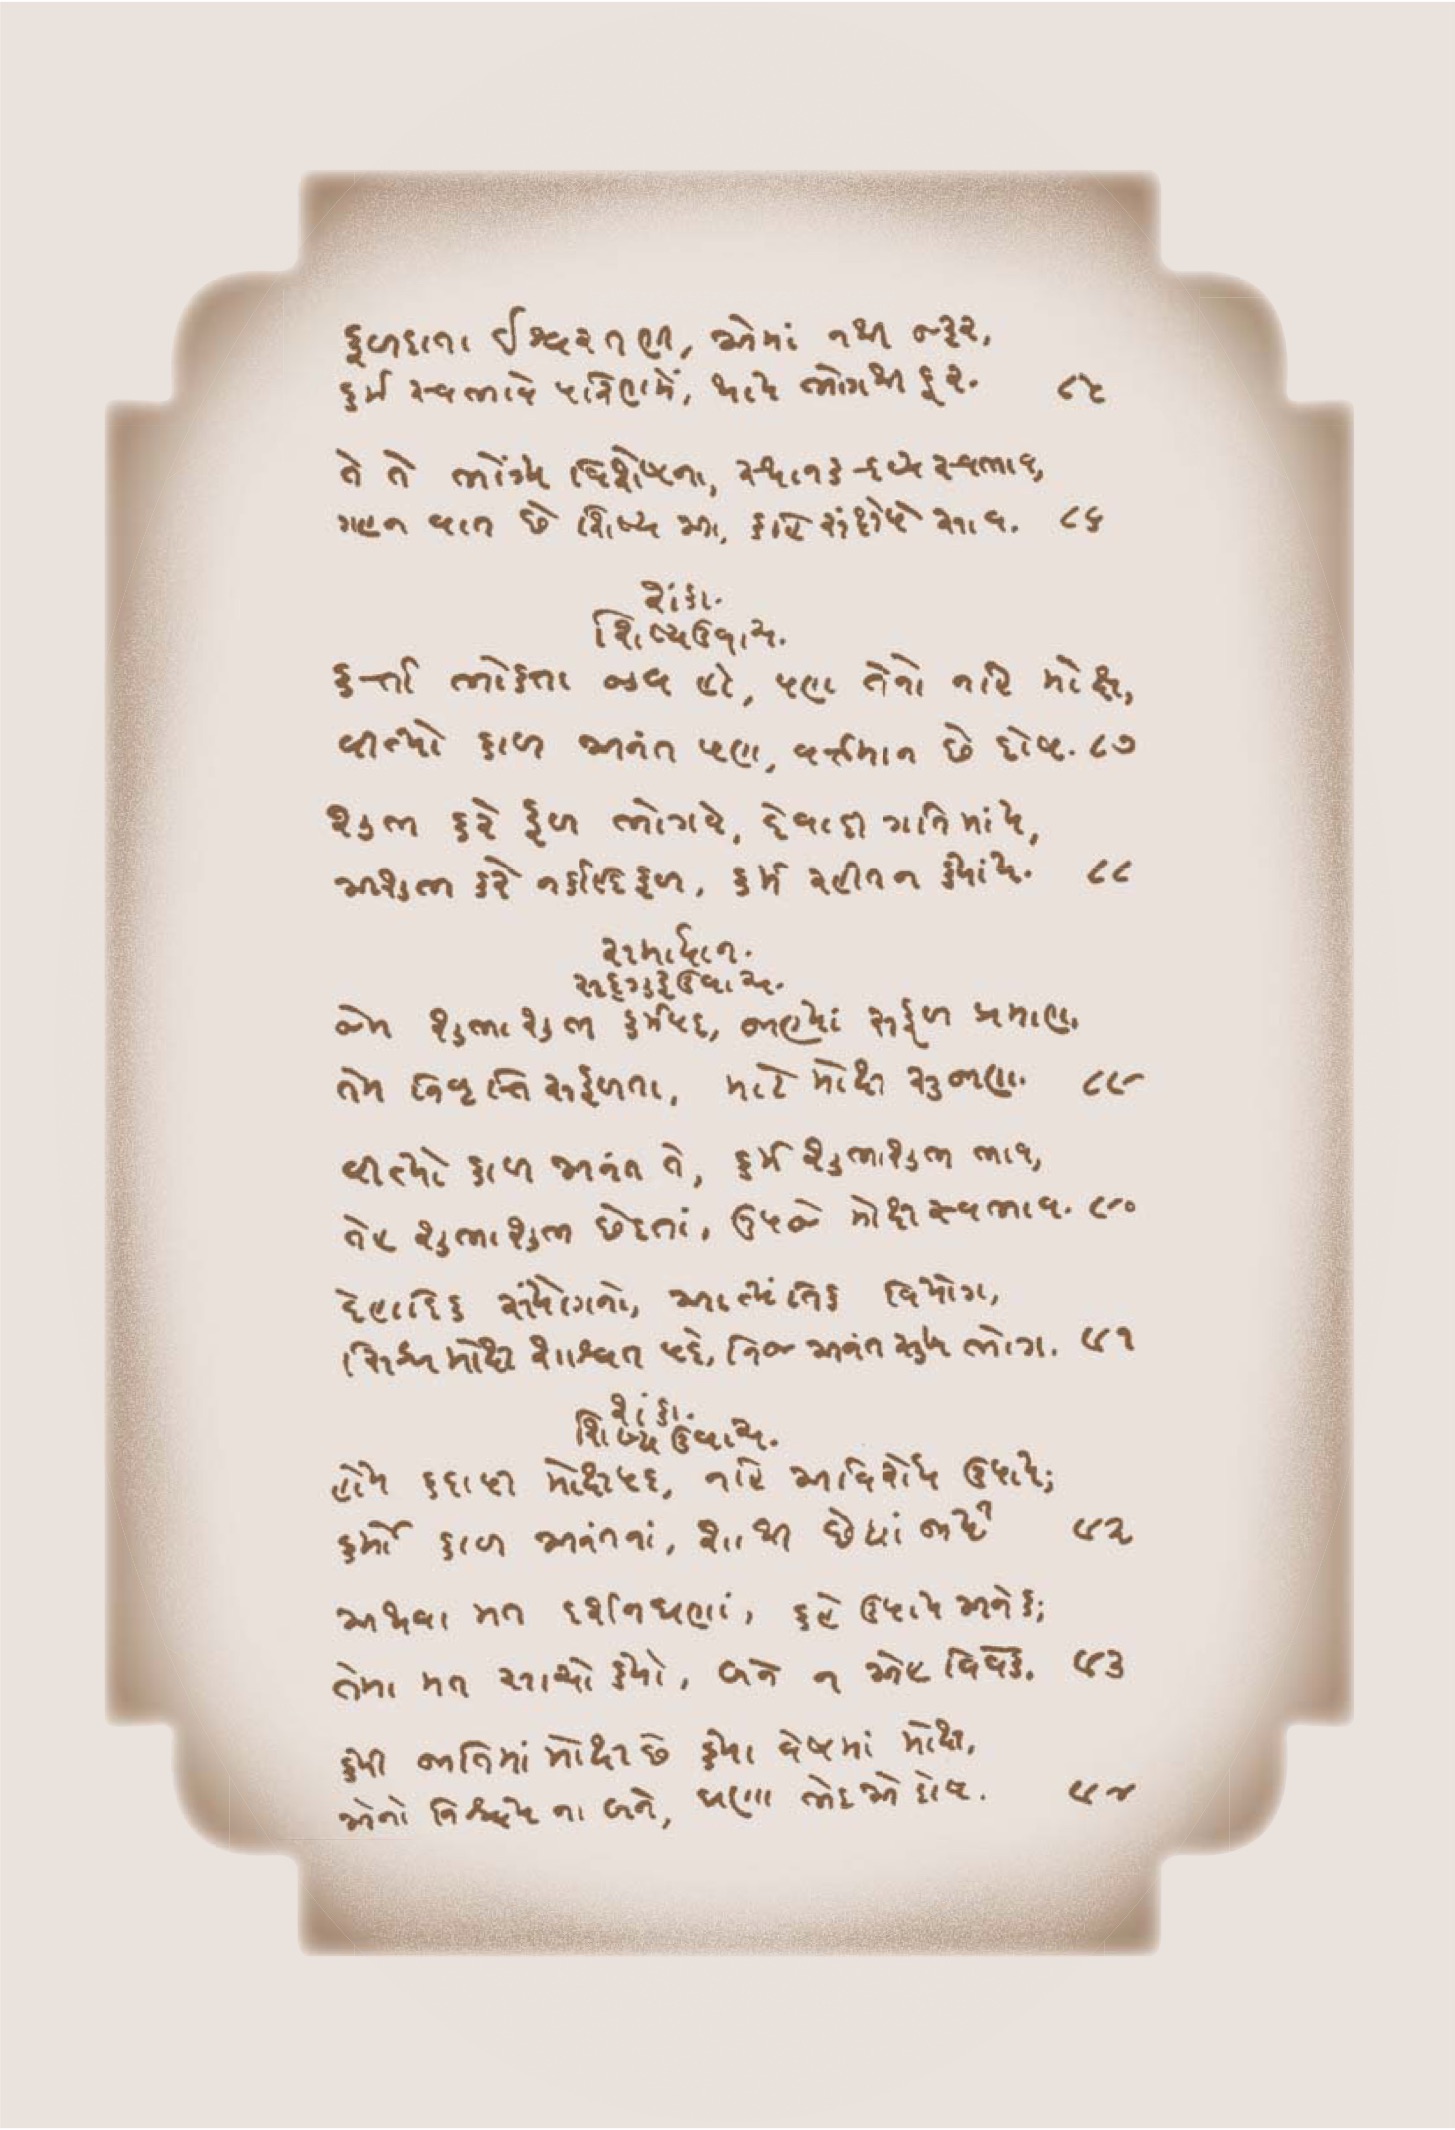 ફળદાતા ઈશ્વરતણી, એમાં નથી જરૂર,
કર્મ સ્વભાવે પરિણમે, થાય ભોગથી દૂર. ૮૫
તે તે ભોગ્ય વિશેષના, સ્થાનક દ્રવ્ય સ્વભાવ,
ગહન વાત છે શિષ્ય આ, કહિ સંક્ષેપે સાવ. ૮૬
શંકા.
શિષ્યઉવાચ.
કર્ત્તા ભોક્તા જીવ હો, પણ તેનો નહિ મોક્ષ,
વીત્યો કાળ અનંત પણ, વર્ત્તમાન છે દોષ. ૮૭
શુભ કરે ફળ ભોગવે, દેવાદી ગતિમાંય,
અશુભ કરે નર્કાદિફળ, કર્મ રહીત ન ક્યાંય. ૮૮
સમાર્ધાન.
સદ્ગુરૂઉવાચ.
જેમ શુભાશુભ કર્મપદ, જાણ્યાં સફળ પ્રમાણ,
તેમ નિવૃત્તિ સફળતા, માટે મોક્ષ સુજાણ. ૮૯
વીત્યો કાળ અનંત તે, કર્મ શુભાશુભ ભાવ,
તેહ શુભાશુભ છેદતાં, ઉપજે મોક્ષ સ્વભાવ. ૯૦
દેહાદિક સંયોગનો, આત્યંતિક વિયોગ,
સિદ્ધ મોક્ષ શાશ્વત પદે, નિજ અનંત સુખ ભોગ. ૯૧
શંકા.
શિષ્યઉવાચ.
હોય કદાપી મોક્ષપદ, નહિ અવિરોધ ઉપાય;
કર્મો કાળ અનંતનાં, શાથી છેદ્યાં જાય? ૯૨
અથવા મત દર્શન ઘણાં, કહે ઉપાય અનેક;
તેમાં મત સાચો કયો, બને ન એહ વિવેક. ૯૩
કયી જાતિમાં મોક્ષ છે કયા વેષમાં મોક્ષ,
એનો નિશ્ચય ના બને, ઘણા ભેદ એ દોષ. ૯૪